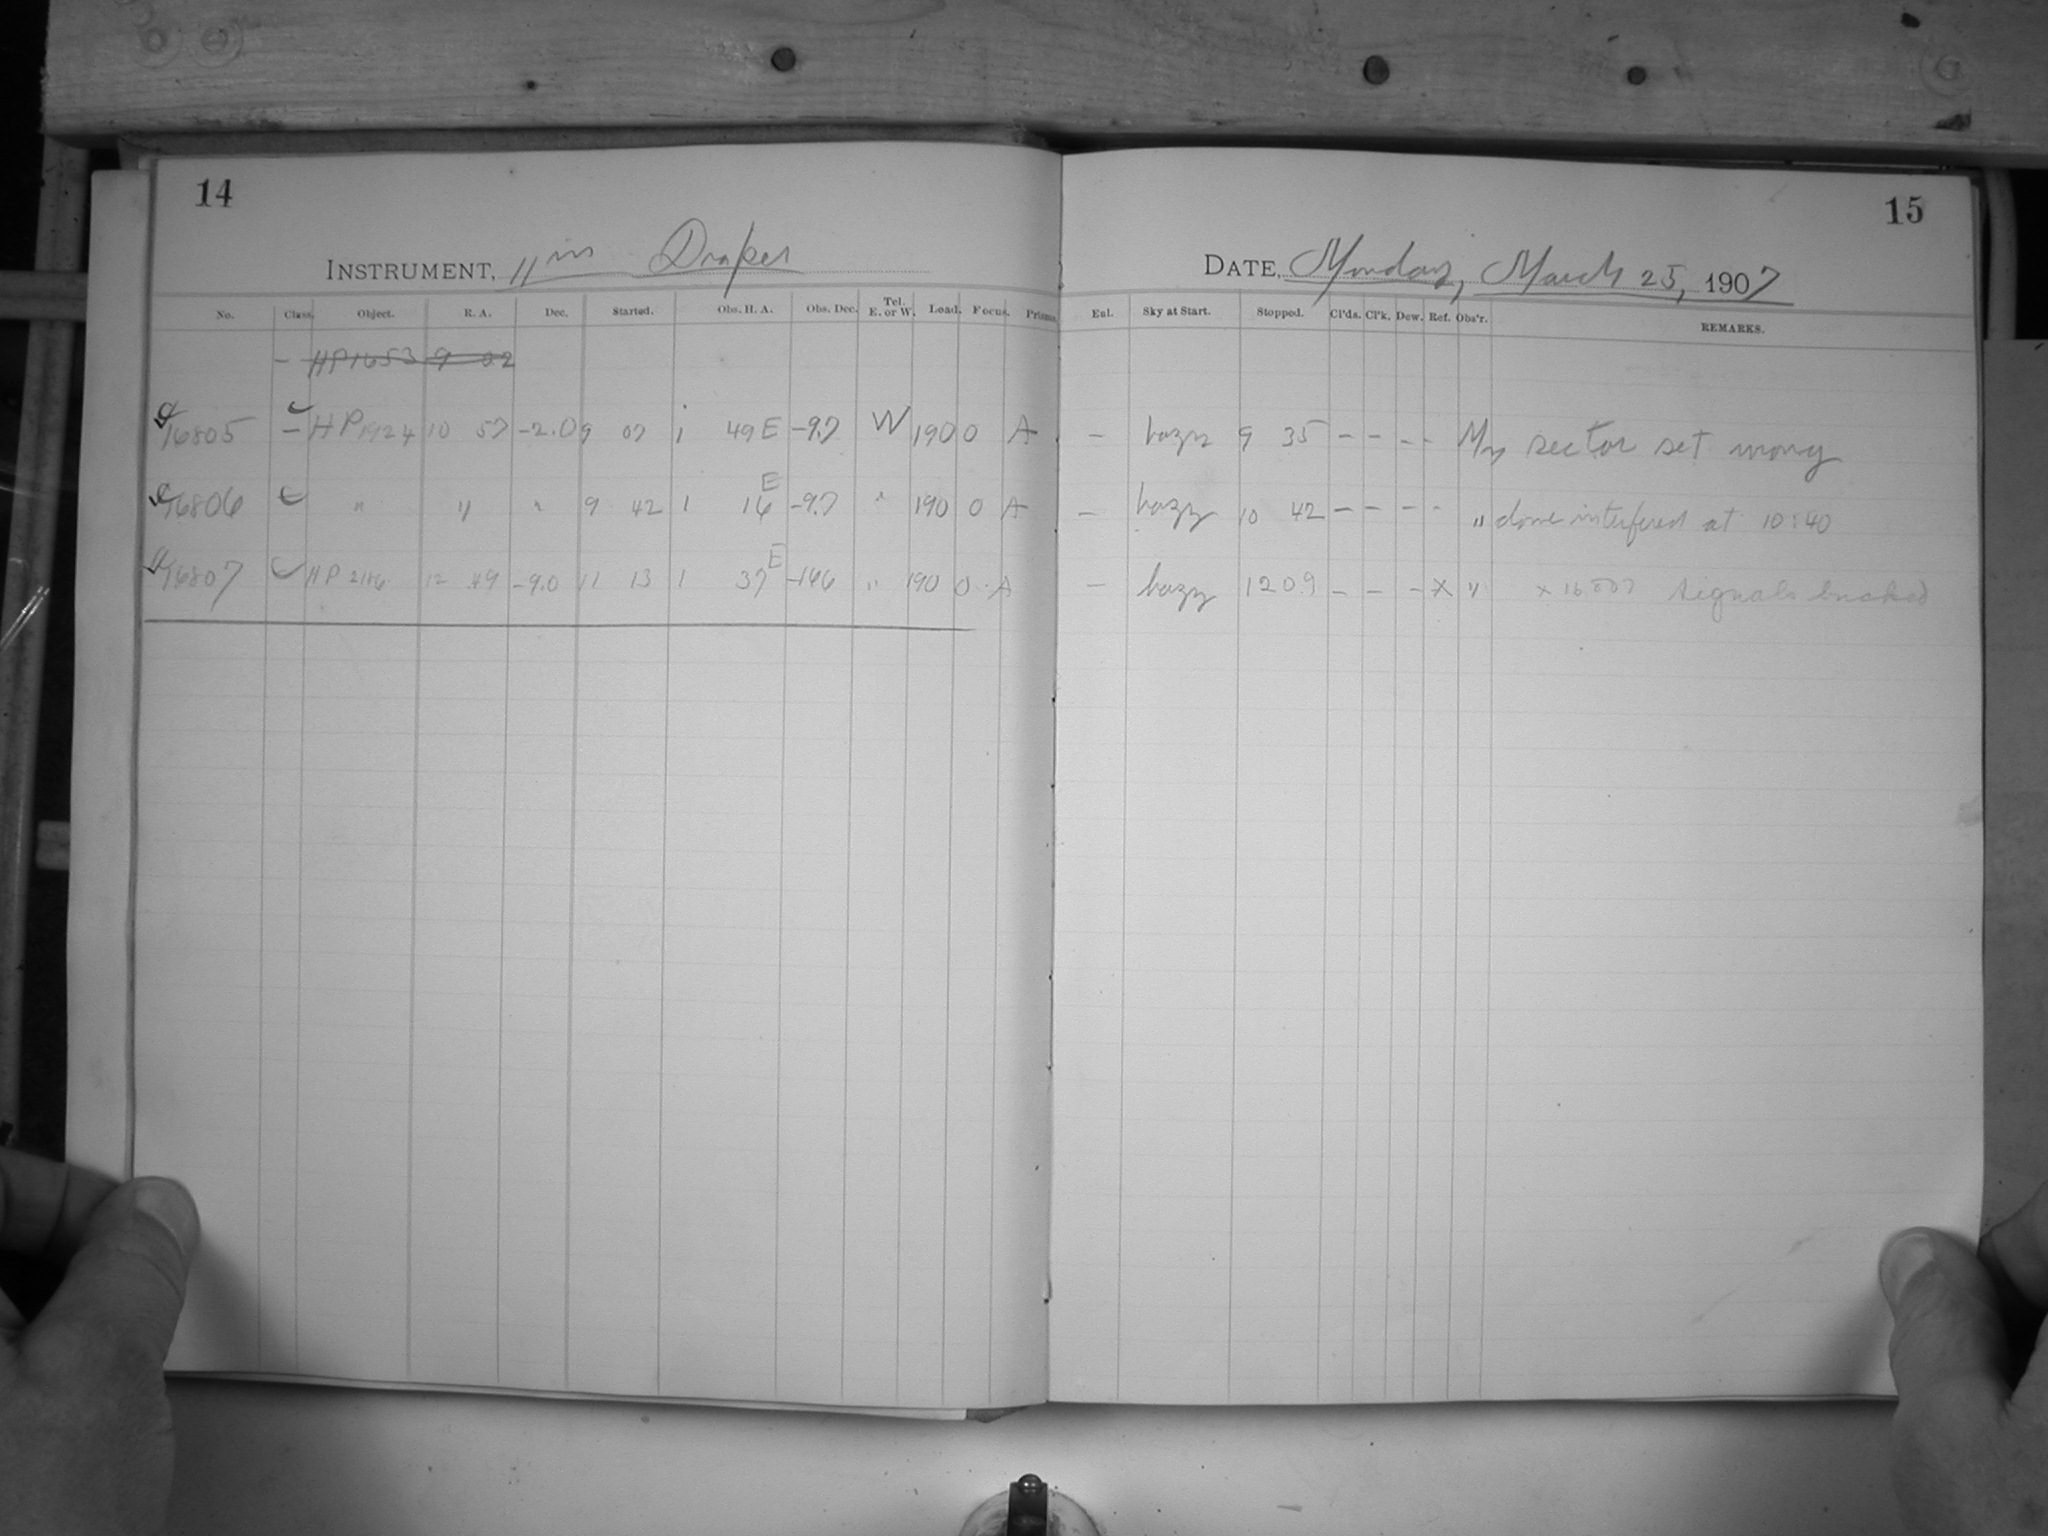 14
INSTRUMENT, 11 in Draper
No. Class. Object. R. A. Dec. Started. Obs. H. A. Obs. Dec. Tel. E. or W. Load. Focus. Prisms.
– HP1653 9 02
16805 – HP1924 10 57 -2.0 9 07 1 49 E -9.7 W 190 0 A
16806 C " " " 9 42 1 16 E -9.7 " 190 0 A
16807 C HP 12 49 -9.0 11 13 1 37 E " 190 0 A
15
DATE, Monday, March 25, 1907
Eul. Sky at Start. Stopped. Cl'ds. Cl'k. Dew. Ref. Obs'r. REMARKS.
– hazy 9 35 – – – – My sector set wrong
– hazy 10 42 – – – – " dome interfered at 10:40
– hazy 12 09 – – – x " x 16807 signals